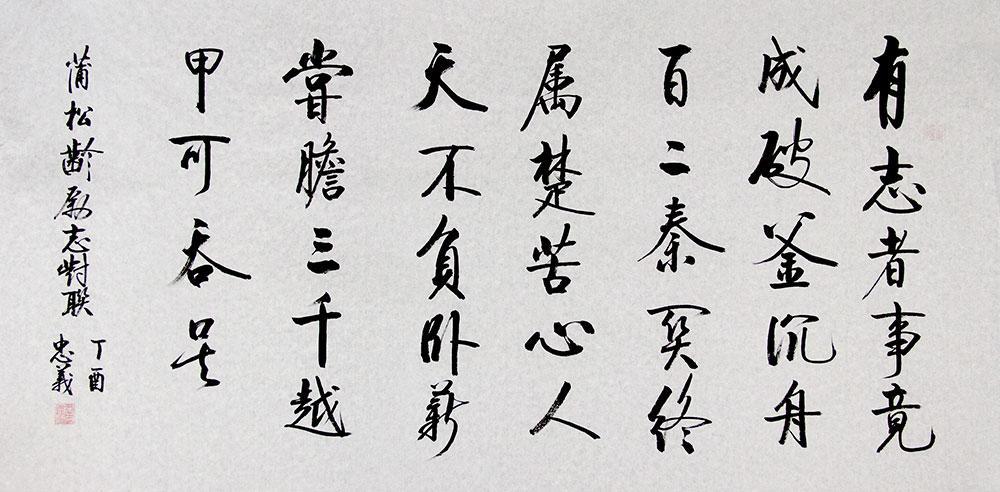 有志者事竟
成破釜沉舟
百二秦関终
属楚苦心人
天不負卧薪
嘗膽三千越
甲可吞吴
蒲松齡励志對联
丁酉
忠義